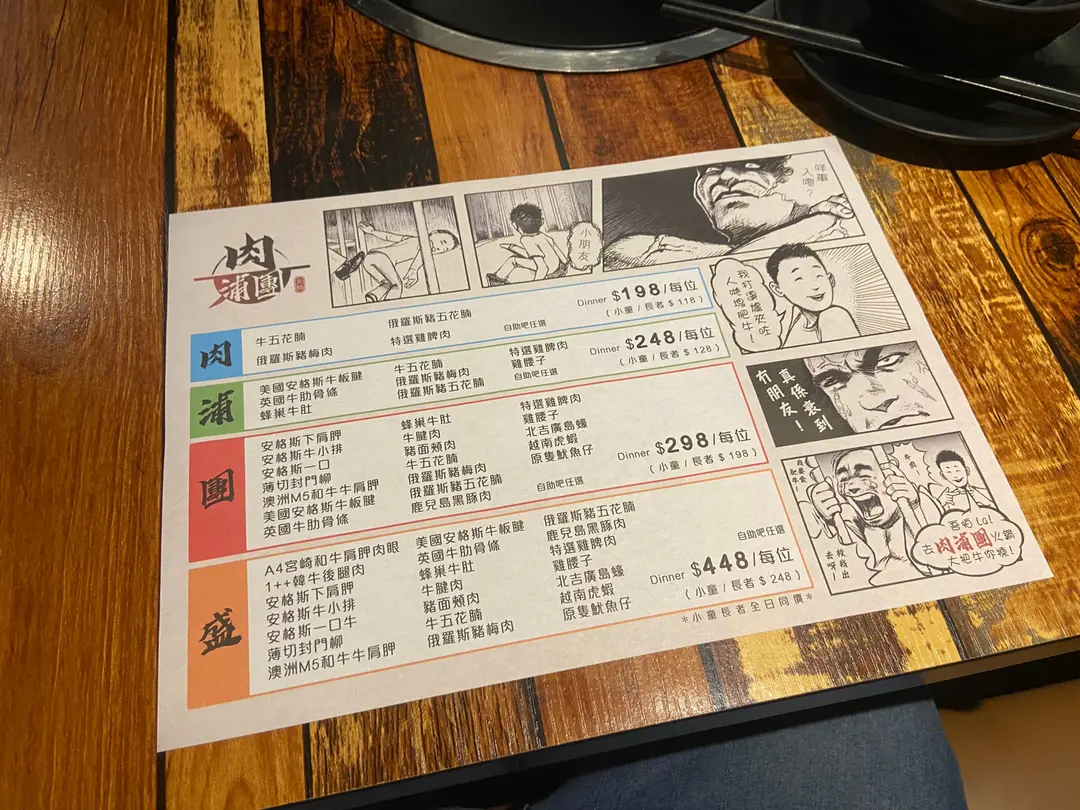 肉
浦團
小朋友
咩事
入嚟？
肉
牛五花腩
俄羅斯豬五花腩
俄羅斯豬梅肉
特選雞脾肉
自助吧任選
Dinner $198/每位
( 小童 / 長者 $ 118 )
浦
美國安格斯牛板腱
牛五花腩
特選雞脾肉
英國牛肋骨條
俄羅斯豬梅肉
雞腰子
蜂巢牛肚
俄羅斯豬五花腩
自助吧任選
Dinner $248/每位
( 小童 / 長者 $ 128 )
團
安格斯下肩胛
安格斯牛小排
安格斯一口
薄切封門柳
澳洲M5和牛牛肩胛
美國安格斯牛板腱
英國牛肋骨條
蜂巢牛肚
牛腱肉
豬面頰肉
牛五花腩
俄羅斯豬梅肉
俄羅斯豬五花腩
鹿兒島黑豚肉
特選雞脾肉
雞腰子
北吉廣島蠔
越南虎蝦
原隻魷魚仔
自助吧任選
Dinner $298/每位
( 小童 / 長者 $ 198 )
盛
A4宮崎和牛肩胛肉眼
1++韓牛後腿肉
安格斯下肩胛
安格斯牛小排
安格斯一口牛
薄切封門柳
澳洲M5和牛牛肩胛
美國安格斯牛板腱
英國牛肋骨條
蜂巢牛肚
牛腱肉
豬面頰肉
牛五花腩
俄羅斯豬梅肉
俄羅斯豬五花腩
鹿兒島黑豚肉
特選雞脾肉
雞腰子
北吉廣島蠔
越南虎蝦
原隻魷魚仔
自助吧任選
Dinner $448/每位
( 小童 / 長者 $ 248 )
*小童長者全日同價*
我打邊爐夾咗
人哋嚿肥牛！
真係衰到
冇朋友！
我要食
肥牛
牛肉
放我出
去呀！
吾怕La!
去肉浦團火鍋
大把牛你燒！